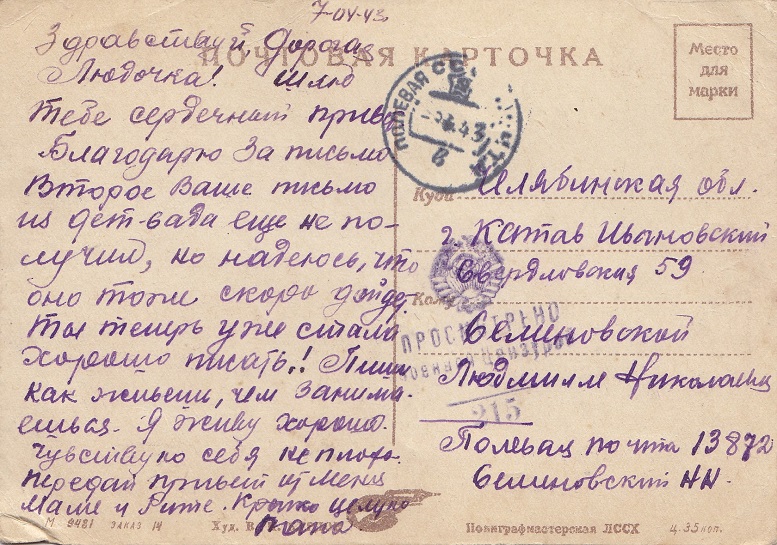 7-04-43
Здравствуй, Дорогая
Людочка! Шлю
тебе сердечный приве
Благодарю за письмо
Второе Ваше письмо
из дет-сада еще не по-
лучил, но надеюсь, что
оно тоже скоро дойде.
Ты теперь уже стала
хорошо писать! Пиши
как живеш, чем занима-
ешься. Я живу хорошо.
Чувствую себя не плохо.
Передай привет от меня
Маме и Рите. Крепко целую
папа
М. 9481 заказ 14 Худ. В.
ПОЧТОВАЯ КАРТОЧКА
Место
для
марки
ПОЛЕВАЯ
43
8
Куда Челябинская обл.
г. Катав Ивановский
Свердловская 59
Кому
ПРОСМОТРЕНО
Военной Цензурой
215
Семеновской
Людмилле Николаевн
Полевая почта 13872
Семеновский НН.
Полиграфмастерская ЛССХ ц. 35 коп.